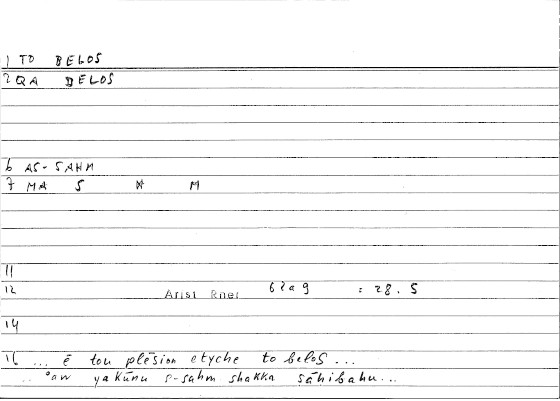 1 TO BELOS
2 QA BELOS
6 AS-SAHM
7 MA S H M
11
12 Arist Rhet 62a9 : 28.5
14
16 ... ē tou plēsion etyche to belos ...
.. ʾaw yakūnu s-sahm shakka ṣāḥibahu...